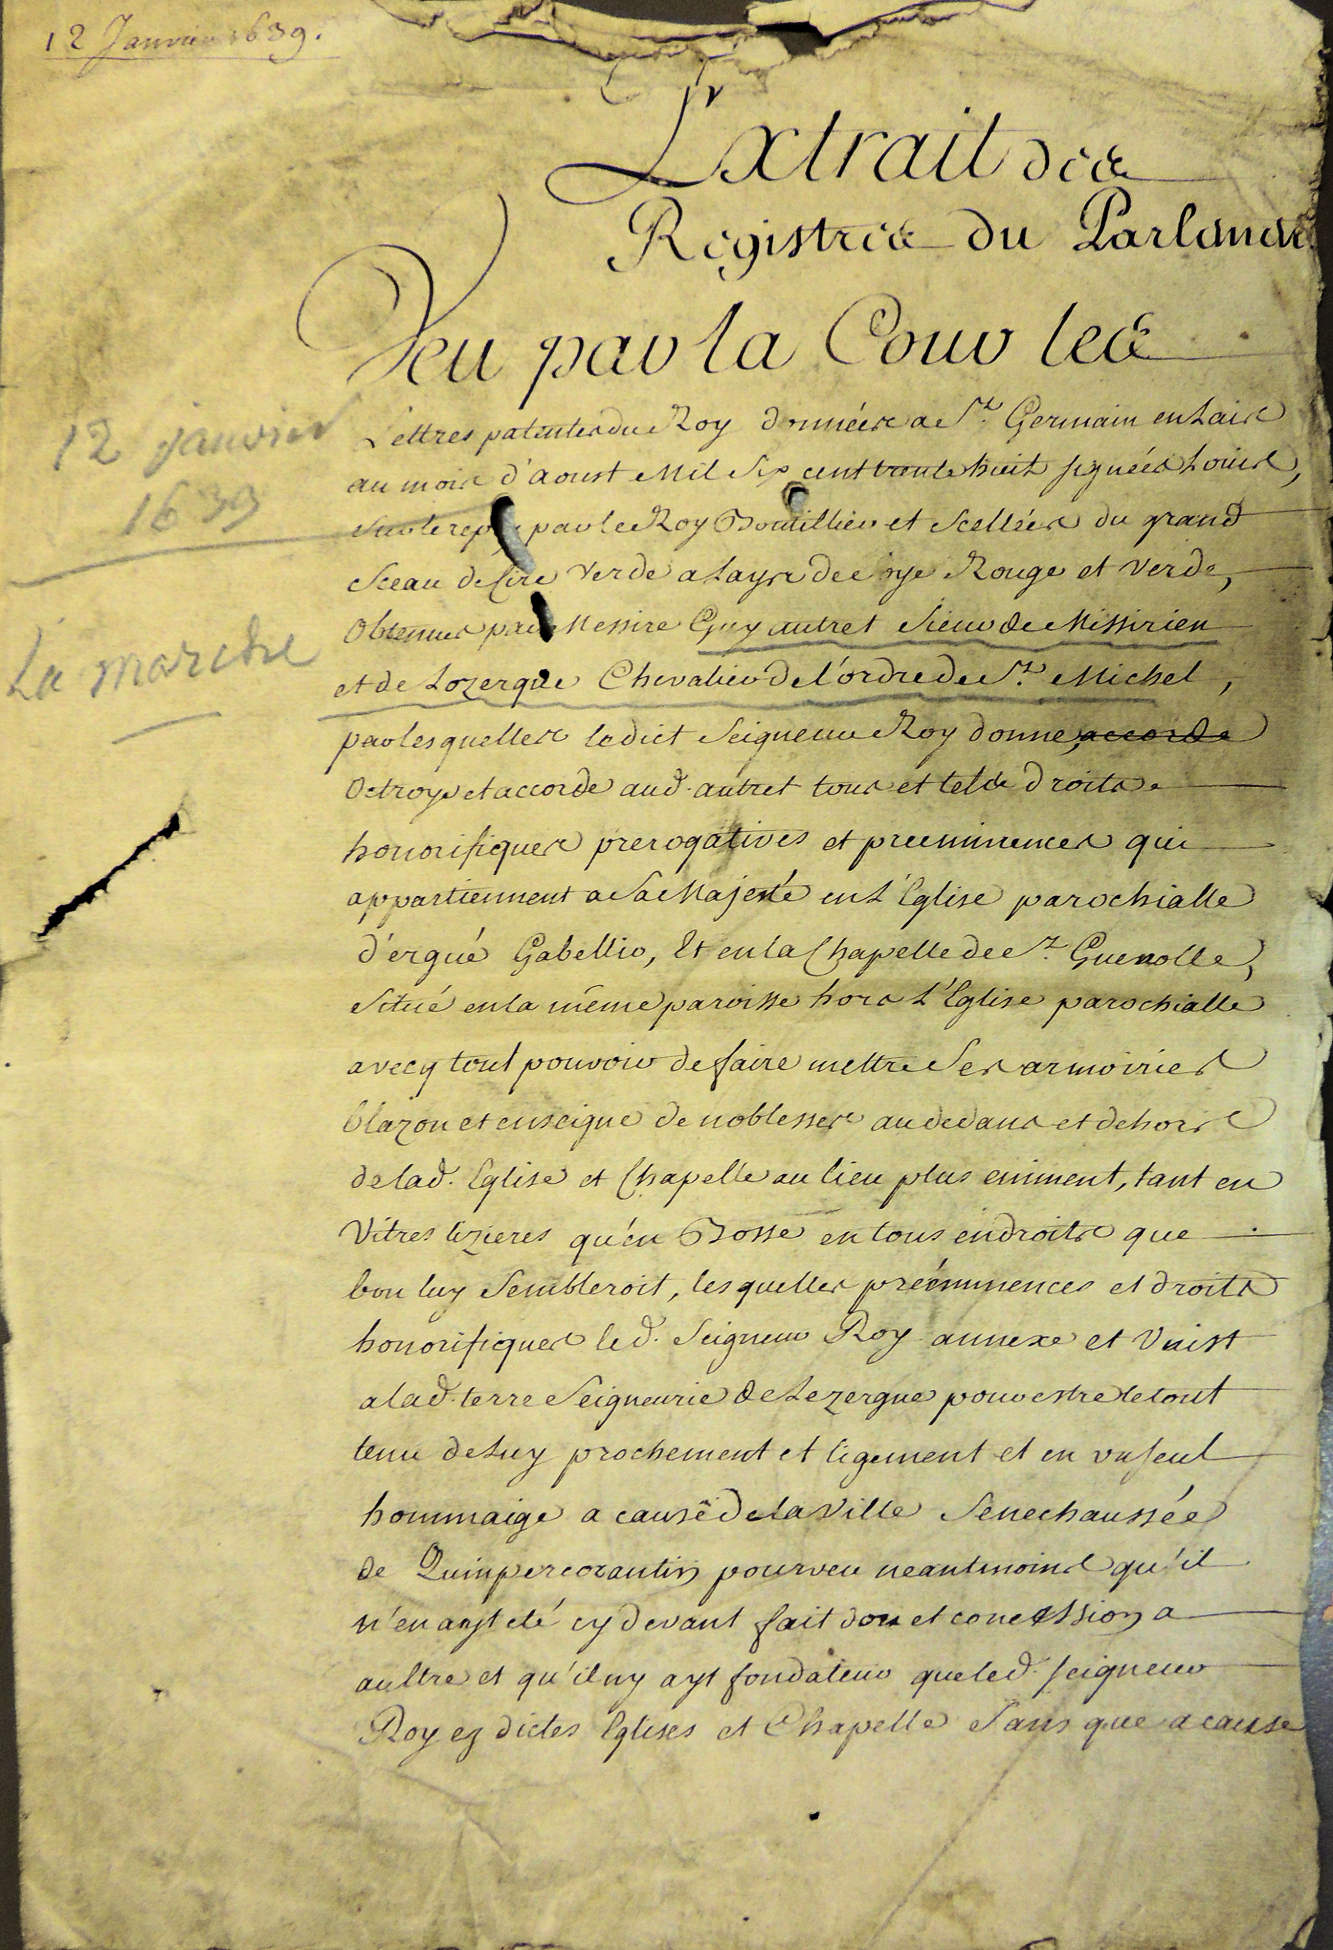 12 Janvier 1639.
Extrait des
Registres du Parlement
Veu par la Cour les
12 janvier
1639
La marche
Lettres patentes du Roy données a St. Germain en Laies
au mois d'aoust Mil Six cent trente huit signées Louis,
Sur le reply par le Roy Boutillier et Scellées du grand
Sceau de Cire Verde a Lays de soye Rouge et Verde,
Obtenues par Messire Guy autret Sieur de Missirien
et de Lezergue Chevalier de l'ordre de St. Michel,
par lesquelles ledict Seigneur Roy donne, accorde
Octroye et accorde aud. autret tous et tels droits
honorifiques prerogatives et preeminences qui
appartiennent a Sa Majesté en L'Eglise parochialle
d'ergué Gabellic, Et en la Chapelle de St. Guenolle,
Situé en la même paroisse hors L'Eglise parochialle
avecq tout pouvoir de faire mettre Ses armoiries
blazon et enseigne de noblesses au dedans et dehors
de lad. Eglise et Chapelle au lieu plus eminent, tant en
Vitres lizieres qu'en Bosse en tous endroits que
bon luy Sembleroit, lesquelles préeminences et droits
honorifiques led. Seigneur Roy annexe et Unist
a lad. terre Seigneurie de Lezergue pour estre le tout
tenu de Luy prochement et ligement et en un seul
hommaige a cause de la Ville Senechaussée
de Quimpercorantin pourveu neantmoins qu'il
n'en ayt eté cy devant fait don et concession a
aultre et qu'il ny ayt fondateur que led. seigneur
Roy es dictes Eglises et Chapelle Sans que a cause